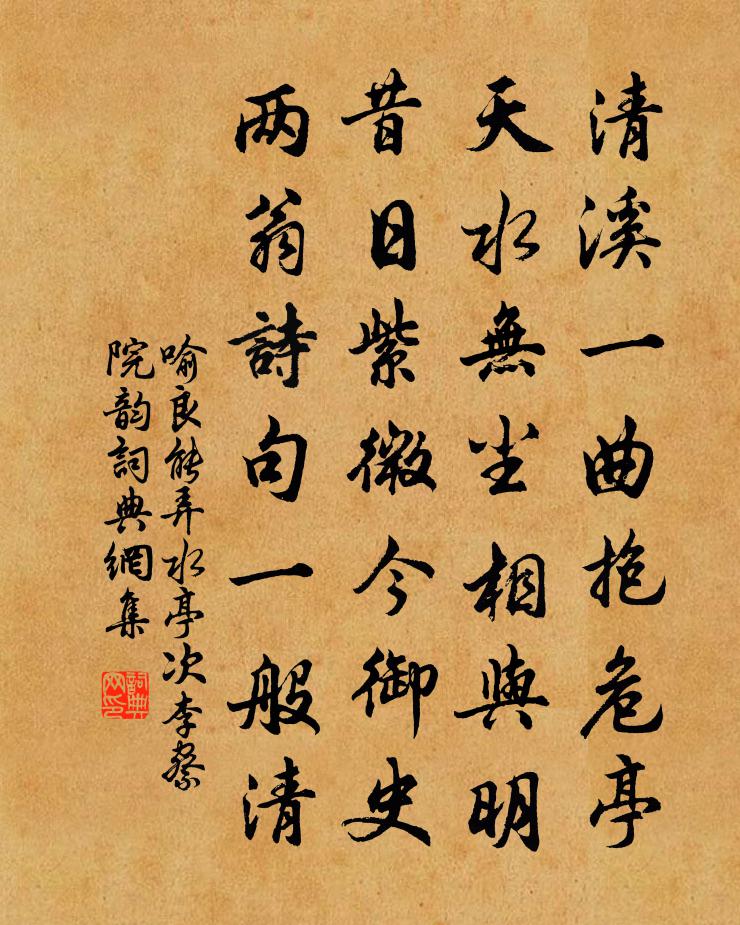 清溪一曲抱危亭
天水無尘相與明
昔日紫微今御史
两翁詩句一般清
喻良能弄水亭次李察
院韵詞典網集
詞典网印